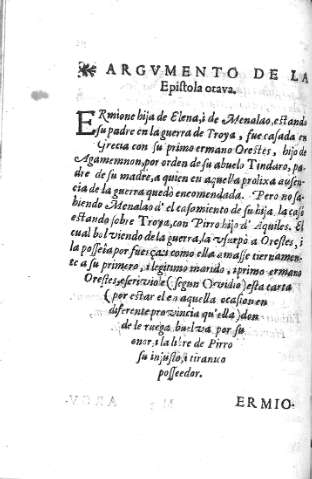 ARGVMENTO DE LA
Epistola otava.
ERmione hija de Elena, i de Menalao, estando
su padre en la guerra de Troya, fue casada en
Grecia con su primo ermano Orestes, hijo de
Agamemnon, por orden de su abuelo Tindaro, pa
dre de su madre, a quien en aquella prolixa ausen
cia de la guerra quedò encomendada. Pero no sa
biendo Menalao d'el casamiento de su hija, la casò
estando sobre Troya, con Pirro hijo d'Aquiles. El
cual bolviendo de la guerra, la vsurpò a Orestes, i
la posseìa por fuerça: i como ella amasse tiernamen-
te a su primero, i legitimo marido, i primo ermano
Orestes, escriviole (segun Ovidio) esta carta
(por estar el en aquella ocasion en
diferente provincia qu'ella) don
de le ruega, buelva por su
onor, i la libre de Pirro
su injusto, i tiranico
posseedor.
ERMIO-